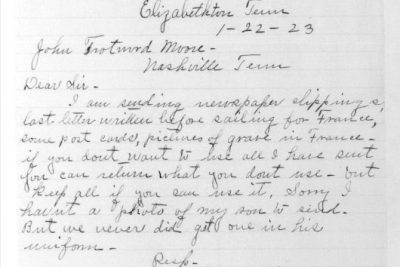 Elizabethton Tenn
1-22-23
John Trotwood Moore-
Nashville Tenn
Dear Sir-
I am sending newspaper clippings,
last letter written before sailing for France,
some post cards, pictures of grave in France-
if you dont want to use all I have sent
you can return what you dont use - but
keep all if you can use it. Sorry I
havn't a photo of my son to send.
But we never did get one in his
uniform-
Resp-